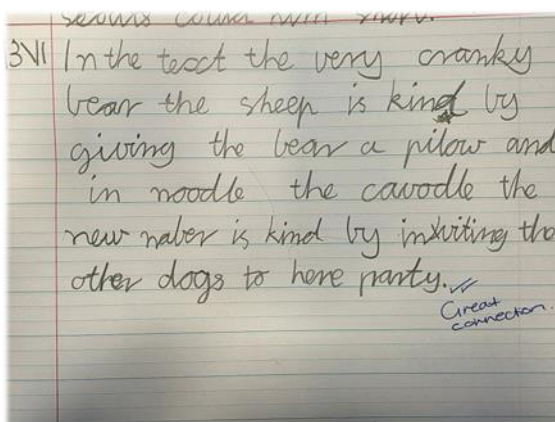 3VI In the teoct the very cranky
bear the sheep is kind by
giving the bear a pilow and
in noodle the cavodle the
new naber is kind by inviting the
other dogs to here party.
Great
connection.